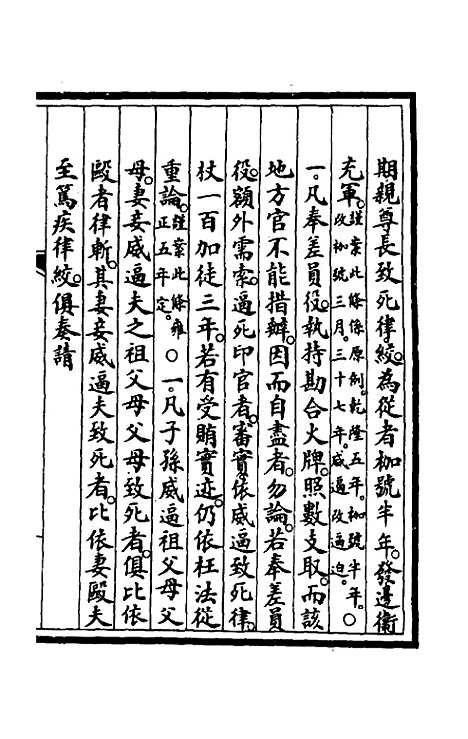 期親尊長致死律絞。為從者枷號半年。發邊衛
充軍。謹案此條係原例。乾隆五年。枷號半年。改枷號三月。三十七年。威逼改逼迫。○
一。凡奉差員役。執持勘合火牌。照數支取。而該
地方官不能措辦。因而自盡者。勿論。若奉差員
役。額外需索。逼死印官者。審實。依威逼致死律。
杖一百加徒三年。若有受賄實迹。仍依枉法從
重論。謹案此條雍正五年定。○一。凡子孫威逼祖父母父
母。妻妾威逼夫之祖父母父母致死者。俱比依
毆者律斬。其妻妾威逼夫致死者。比依妻毆夫
至篤疾律絞。俱奏請